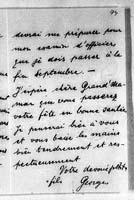 devrai me préparer pour
mon examen d'officier
que je dois passer à la
fin Septembre. —
J'espère chère Grand'Ma-
man que vous passerez
votre fête en bonne santé.
Je penserai bien à vous
et vous baise les mains
bien tendrement et res-
pectueusement
Votre
fils
Georges